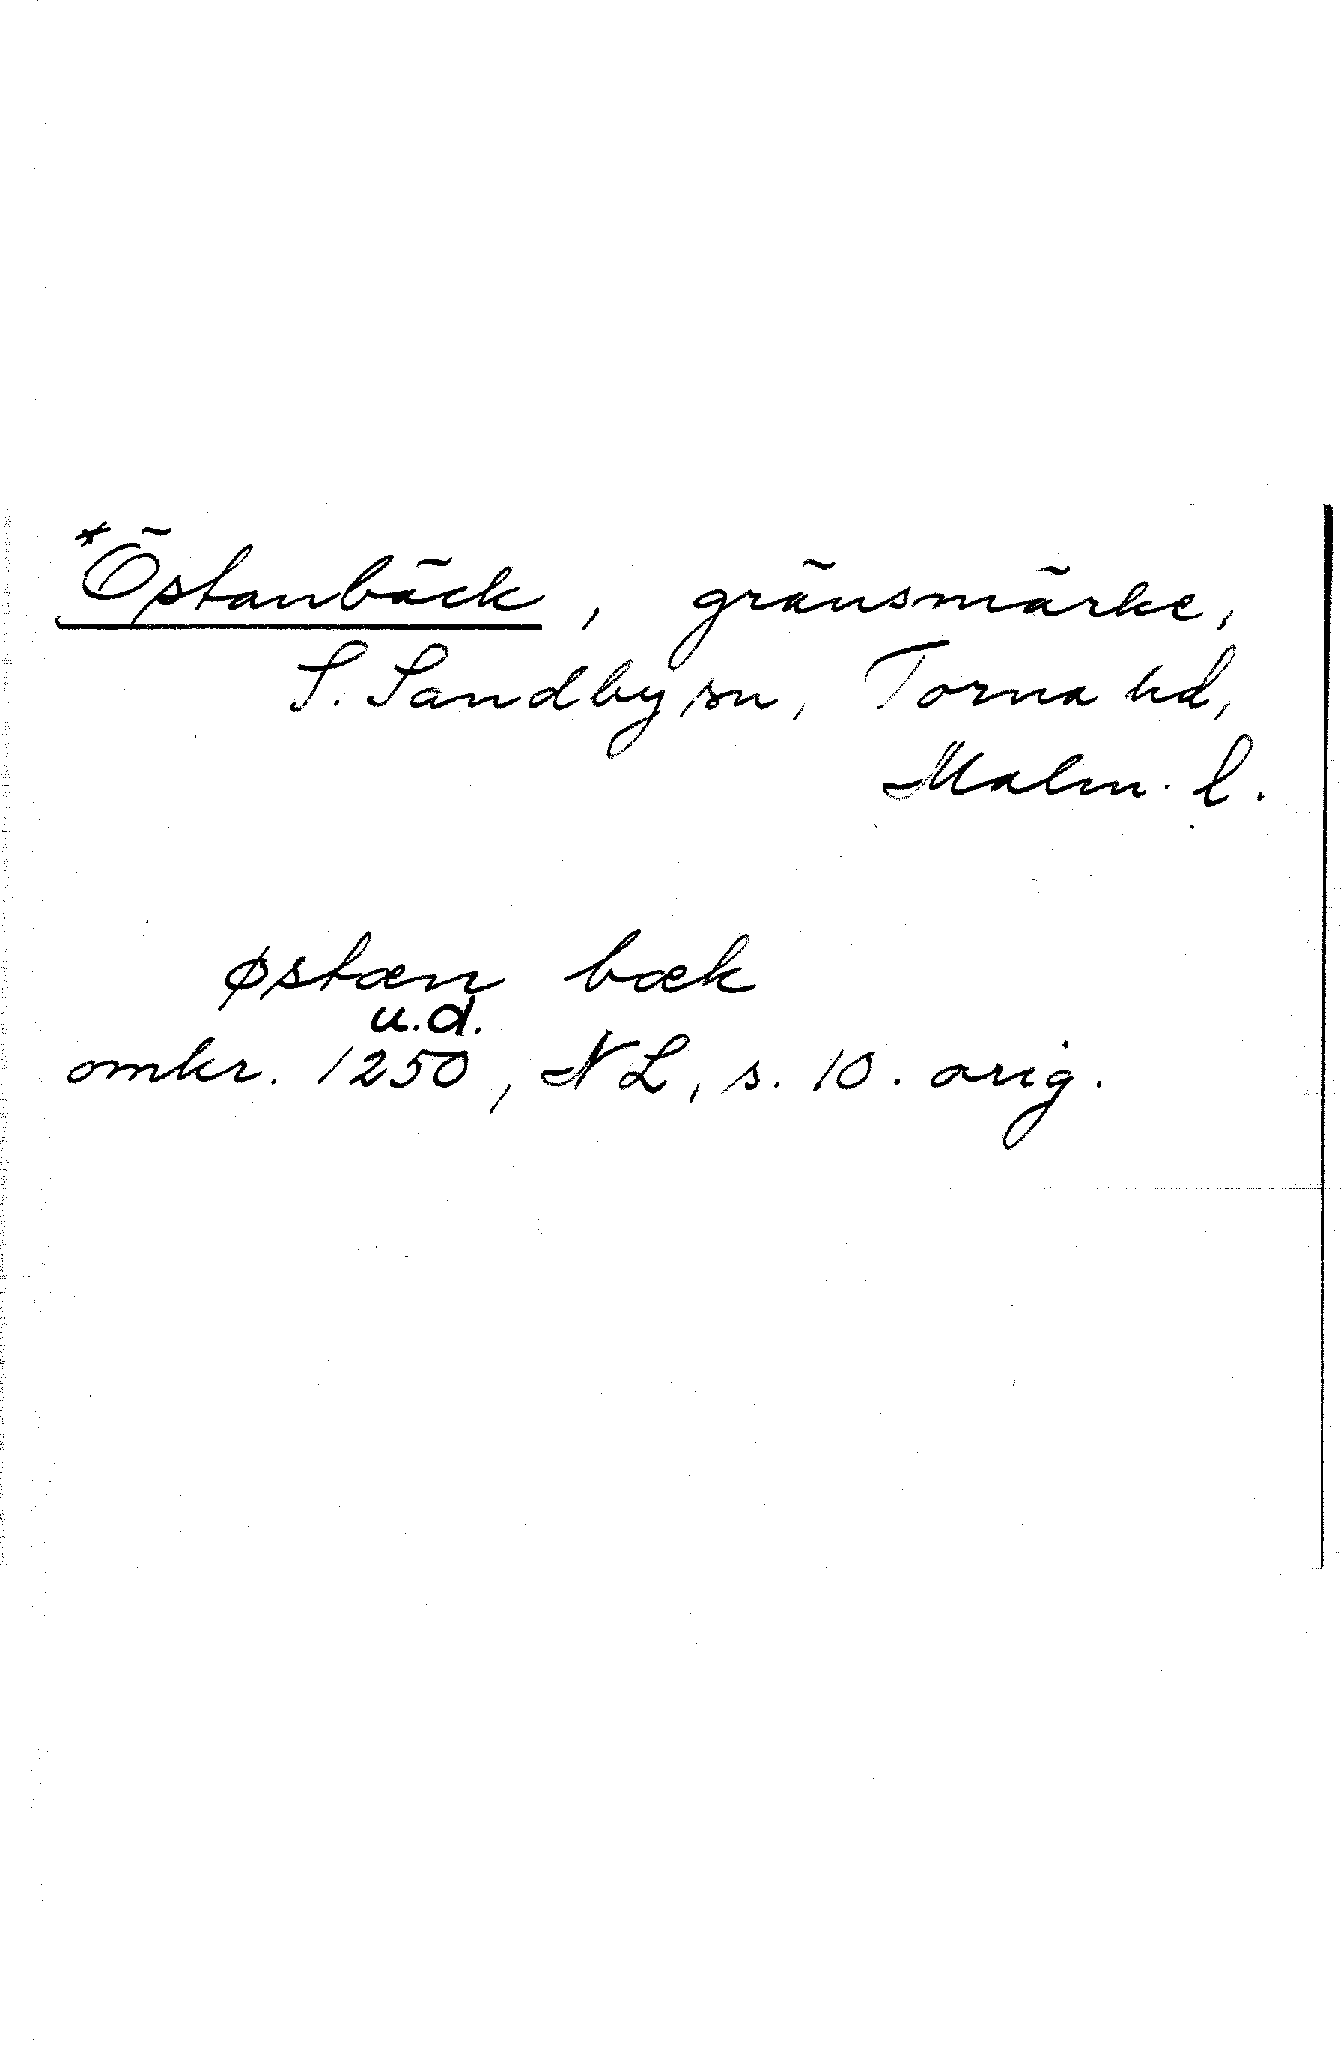 *Östanbäck, gränsmärke,
S. Sandby sn, Torna hd,
Malm. l.
østæn bæk
u.d.
omkr. 1250, NL, s. 10. orig.